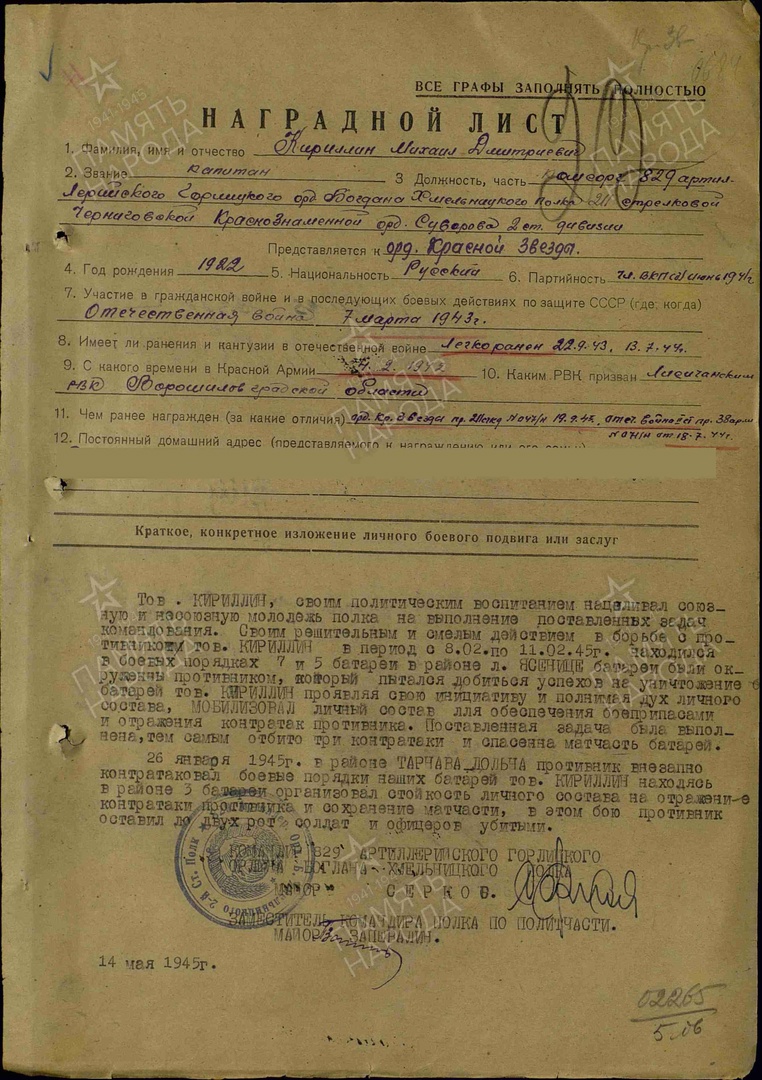 ВСЕ ГРАФЫ ЗАПОЛНЯТЬ ПОЛНОСТЬЮ
НАГРАДНОЙ ЛИСТ
1. Фамилия, имя и отчество Кириллин Михаил Дмитриевич
2. Звание капитан 3 Должность, часть комсорг 829 артил-
лерийского Горлицкого орд Богдана Хмельницкого полка 211 стрелковой
Черниговской Краснознаменной орд. Суворова 2 ст. дивизии
Представляется к орд. Красной Звезды.
4. Год рождения 1922 5. Национальность Русский 6. Партийность чл. ВКП(б) июнь 1941г
7. Участие в гражданской войне и в последующих боевых действиях по защите СССР (где, когда)
Отечественная война 7 марта 1943г.
8. Имеет ли ранения и кантузии в отечественной войне Легко ранен 22.9.43, 13.7.44г.
9. С какого времени в Красной Армии 10. Каким РВК призван Лисичанским
РВК Ворошиловградской области
11. Чем ранее награжден (за какие отличия) орд. Кр. Звезды пр. 211скд отеч. войны пр. 38арм
от 18.7.44г.
12. Постоянный домашний адрес (представляемого к награждению или его семьи)
Краткое, конкретное изложение личного боевого подвига или заслуг
Тов . КИРИЛЛИН, своим политическим воспитанием нацеливал союз-
ную и несоюзную молодежь полка на выполнение поставленных задач
командования. Своим решительным и смелым действием в борьбе с про-
тивником тов. КИРИЛЛИН в период с 8.02.по 11.02.45г. находился
в боевых порядках 7 и 5 батареи в районе л. ЯСЕНИЦЕ батареи были ок-
ружены противником, который пытался добиться успехов на уничтожение
батарей тов. КИРИЛЛИН проявляя свою инициативу и полнимая дух личного
состава, МОБИЛИЗОВАЛ личный состав лля обеспечения боеприпасами
и отражения контратак противника. Поставленная задача была выпол-
нена,тем самым отбито три контратаки и спасенна матчасть батарей.
26 января 1945г. в районе ТАРЧАВА ДОЛЬЧА противник внезапно
контратаковал боевые порядки наших батарей тов. КИРИЛЛИН находясь
в районе 3 батареи организовал стойкость личного состава на отражени-е
контратаки противника и сохранение матчасти, в этом бою противник
оставил ло двух рот солдат и офицеров убитыми.
КОМАНДИР 829 АРТИЛЛЕРИЙСКОГО ГОРЛИЦКОГО
ОРДЕНА БОГДАНА ХМЕЛЬНИЦКОГО ПОЛКА
МАЙОР СЕРКОВ.
ЗАМЕСТИТЕЛЬ КОМАНДИРА ПОЛКА ПО ПОЛИТЧАСТИ.
МАЙОР ЗАПЕРАЛИН.
14 мая 1945г.
02265
5.06
ПАМЯТЬ НАРОДА
1941-1945